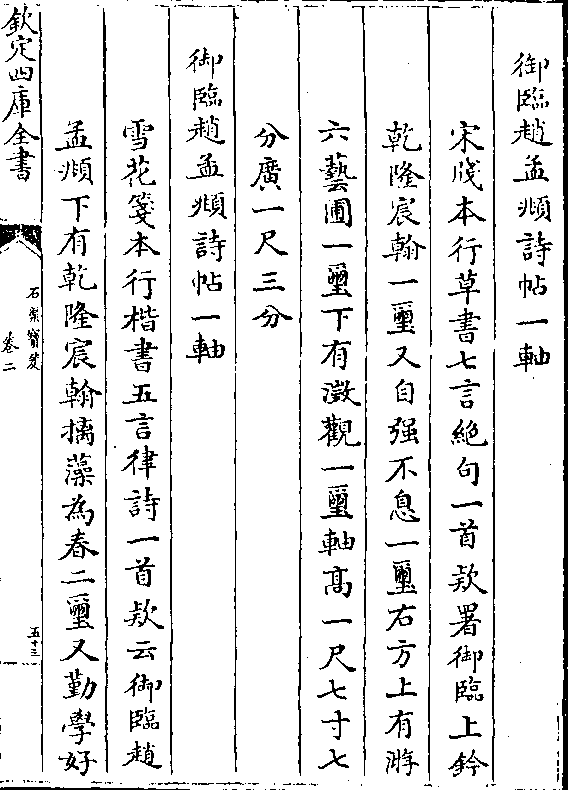 御臨趙孟頫詩帖一軸
宋牋本行草書七言絶句一首欵署御臨上鈐
乾隆宸翰一璽又自强不息一璽右方上有游
六藝圃一璽下有澂觀一璽軸髙一尺七寸七
分廣一尺三分
御臨趙孟頫詩帖一軸
雪花箋本行楷書五言律詩一首欵云御臨趙
孟頫下有乾隆宸翰摛藻為春二璽又勤學好
欽定四庫全書
石渠寳笈
卷二
五十三